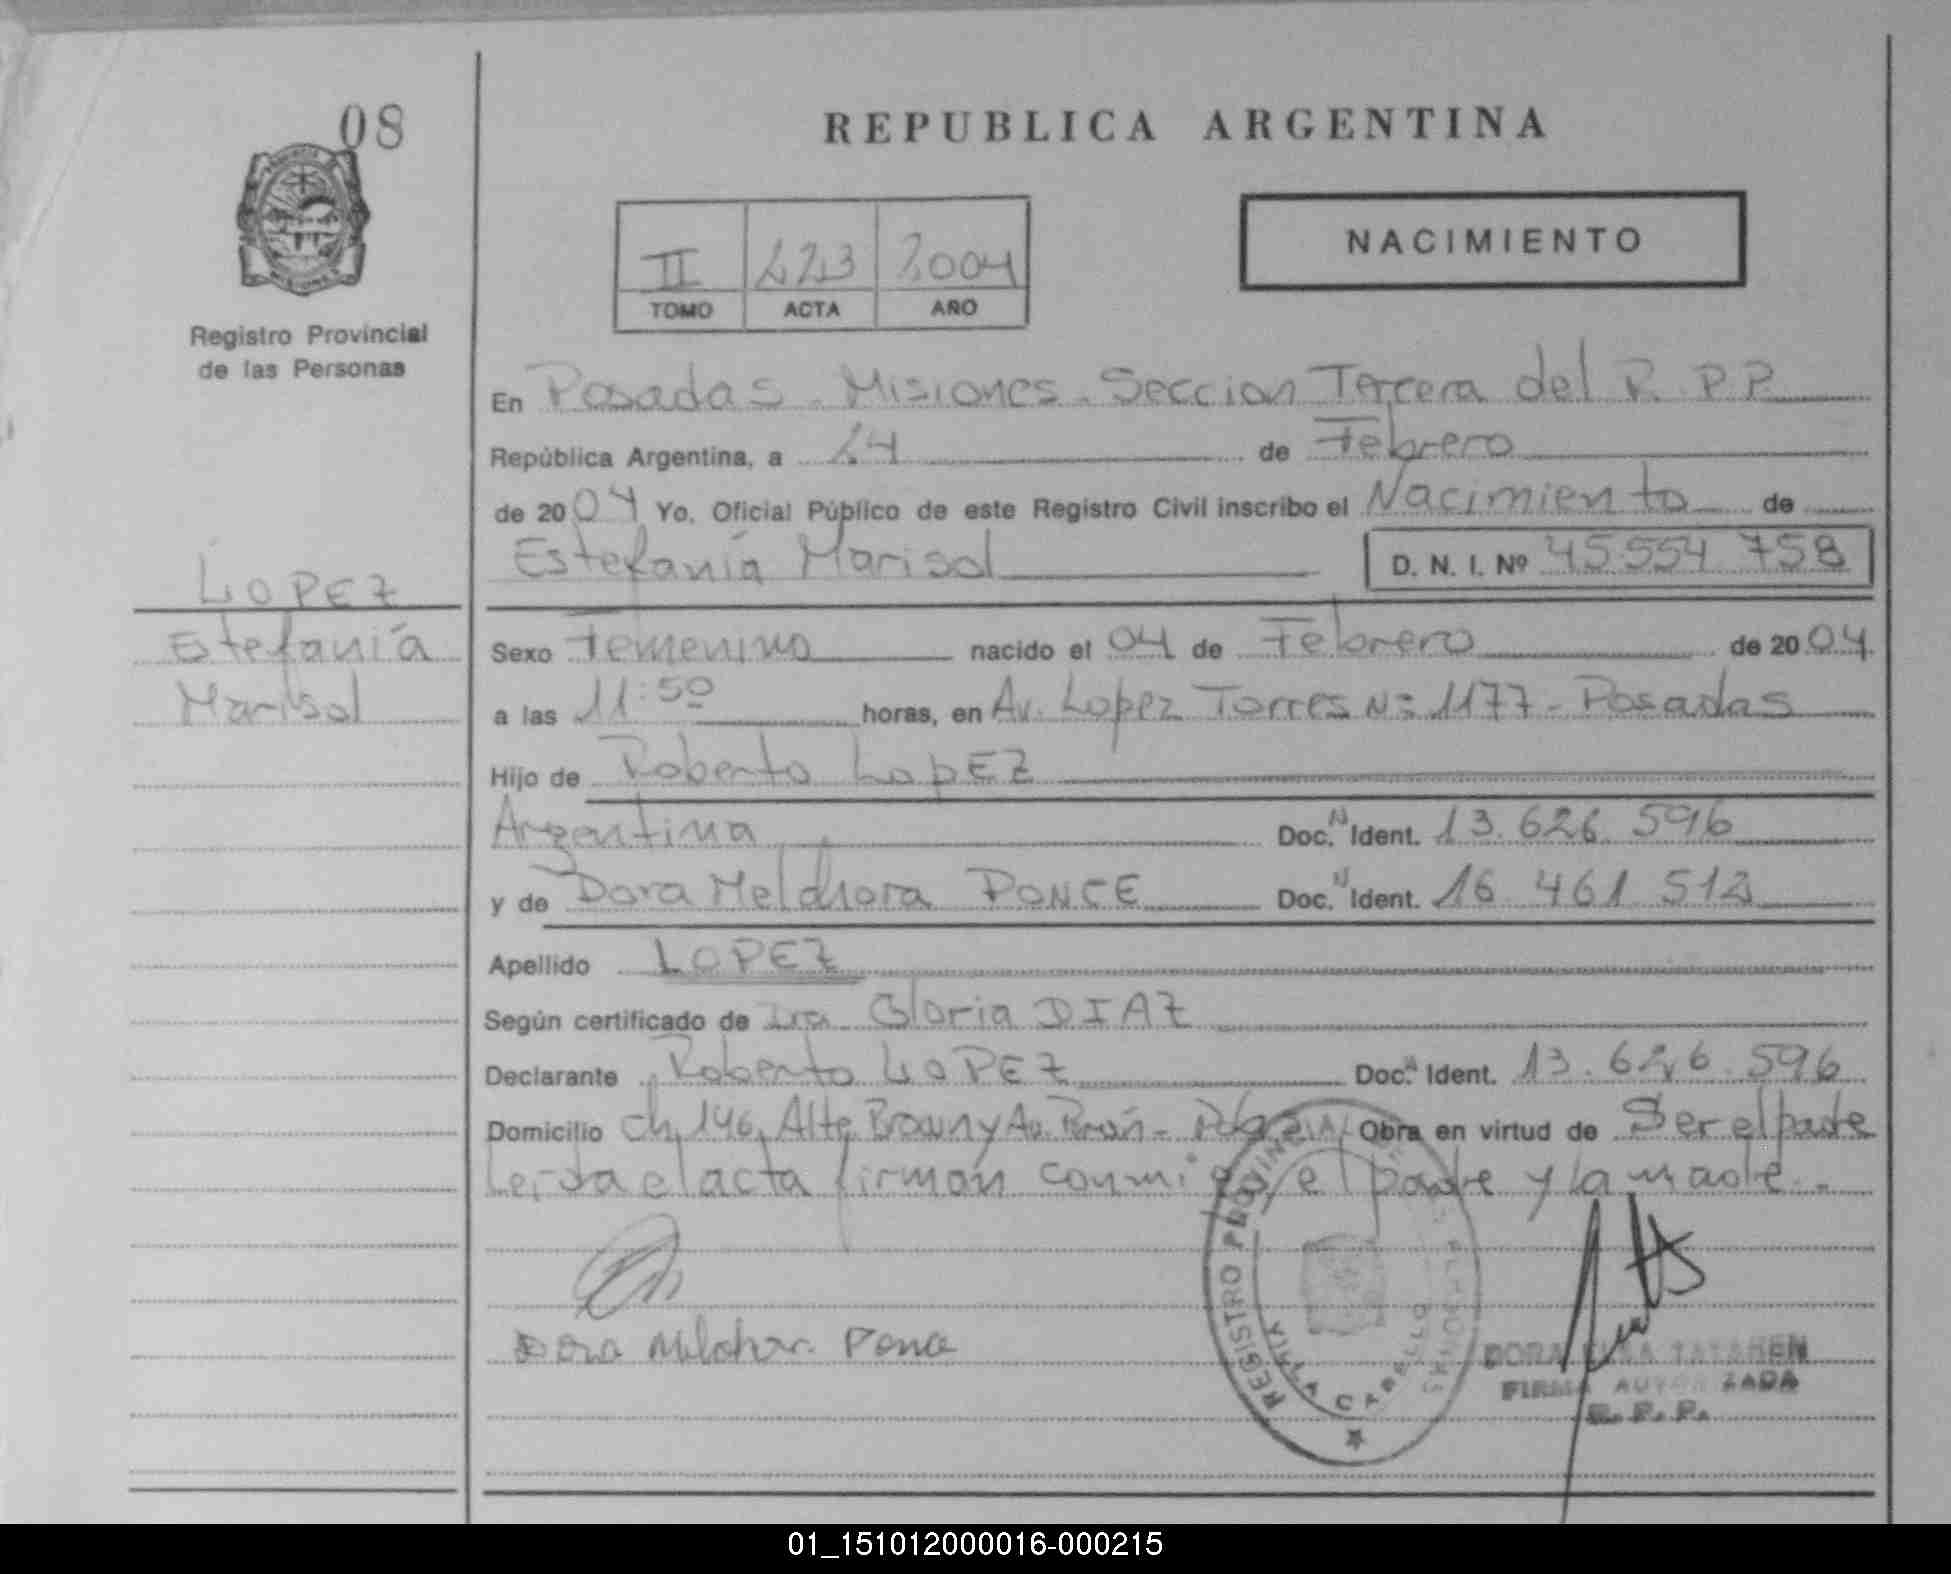 08
REPUBLICA ARGENTINA
NACIMIENTO
II 223 2004
TOMO ACTA AÑO
Registro Provincial
de las Personas
En Posadas - Misiones - Seccion Tercera del R.P.P.
República Argentina, a 24 de Febrero
de 2004 Yo, Oficial Público de este Registro Civil inscribo el Nacimiento de
Estefanía Marisol D. N. I. Nº 45.554.758
LOPEZ
Estefanía
Marisol
Sexo Femenino nacido el 04 de Febrero de 2004.
a las 11:50 horas, en Av. Lopez Torres Nº 1177 - Posadas
Hijo de Roberto LopEZ
Argentina Doc. N Ident. 13.626.596
y de Dora Melchora PONCE Doc. N Ident. 16.461.512
Apellido LOPEZ
Según certificado de Dra. Gloria DIAZ
Declarante Roberto LOPEZ Doc. Ident. 13.626.596
Domicilio ch. 146, Alte Brown y Av. - Obra en virtud de Ser el padre
Leida el acta firman conmigo el padre y la madre.-
Dora Ponce
REGISTRO PROVINCIAL DE LAS PERSONAS
VILLA CABELLO
DORA TATAREN
FIRMA AUTORIZADA
R. P. P.
01_151012000016-000215